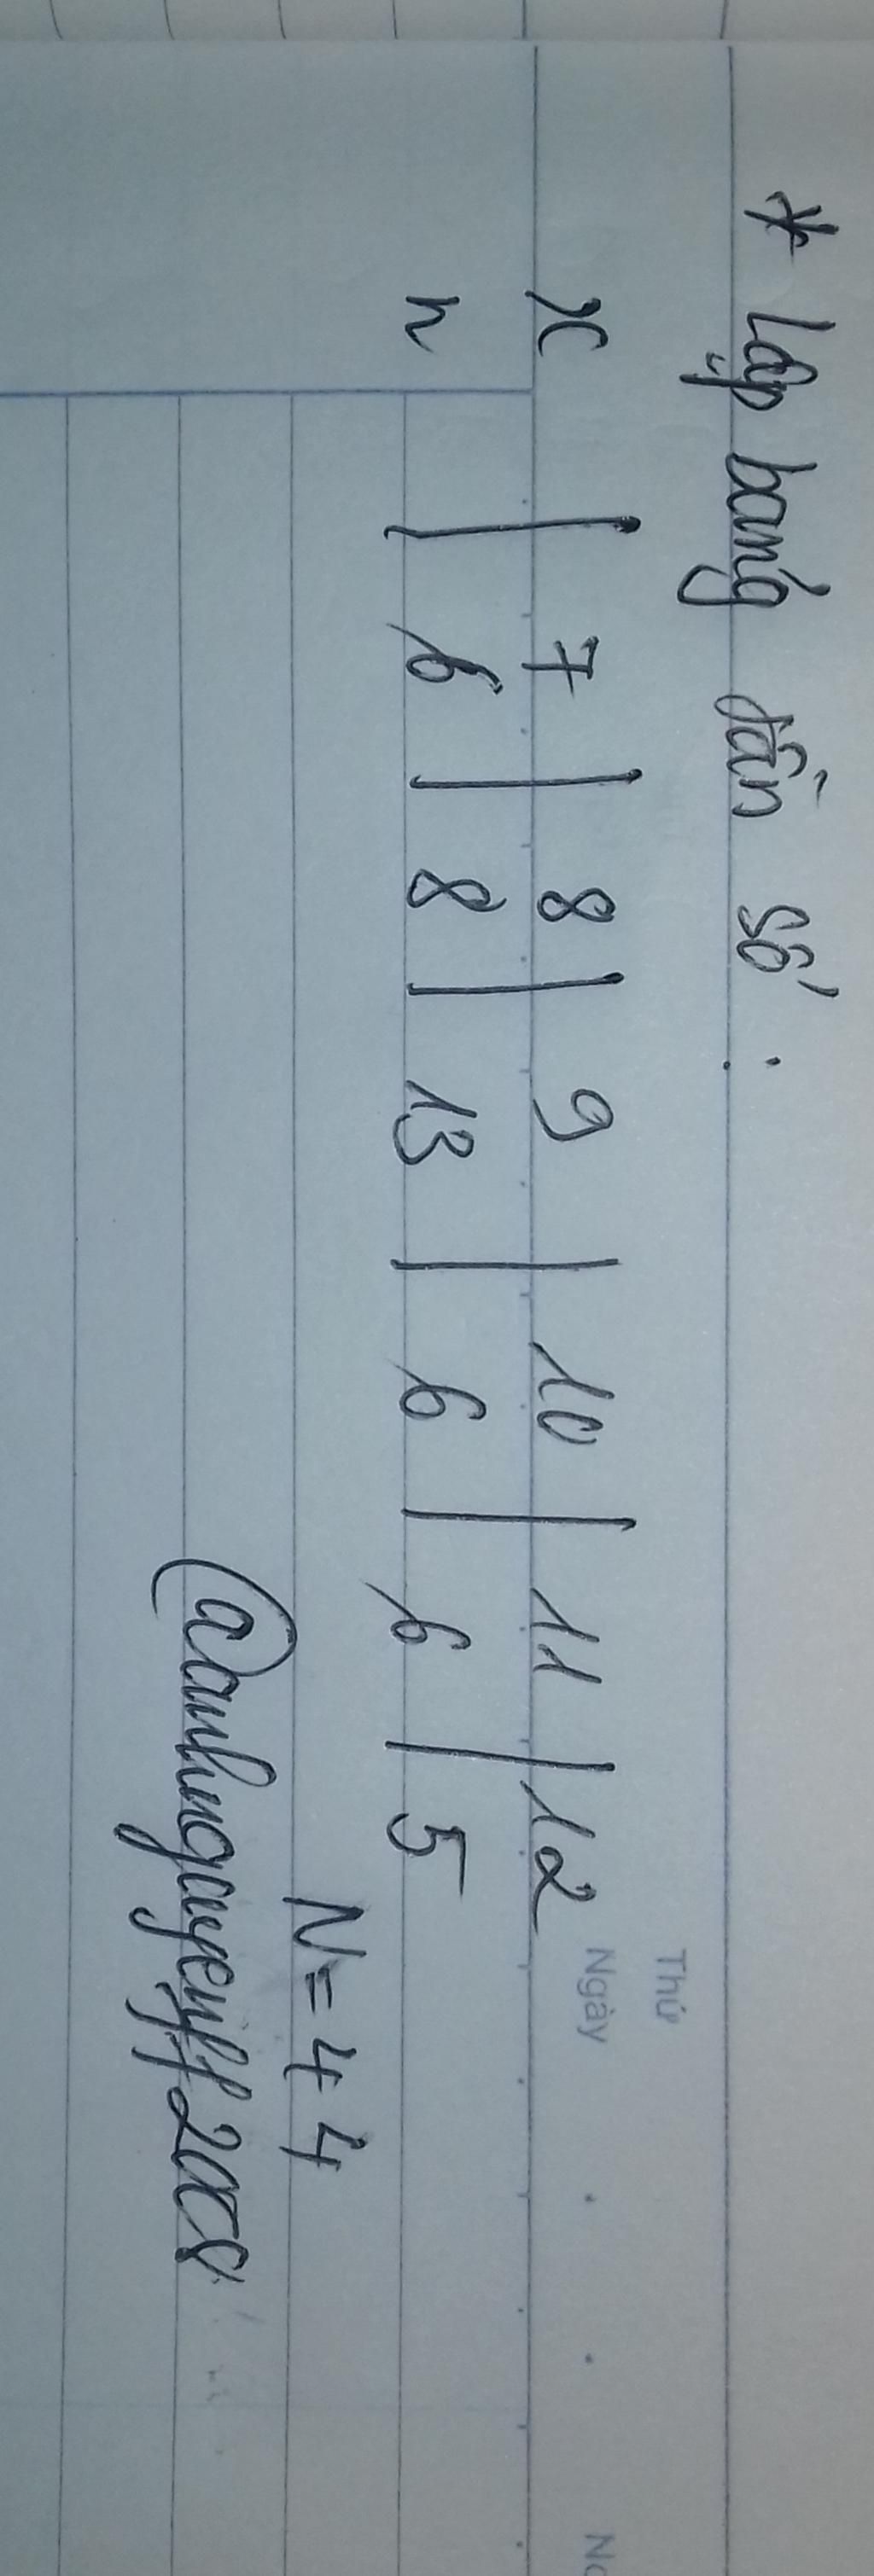 * Lập bảng tần số :
x | 7 | 8 | 9 | 10 | 11 | 12
n | 6 | 8 | 13 | 6 | 6 | 5
N = 44
Thứ
Ngày